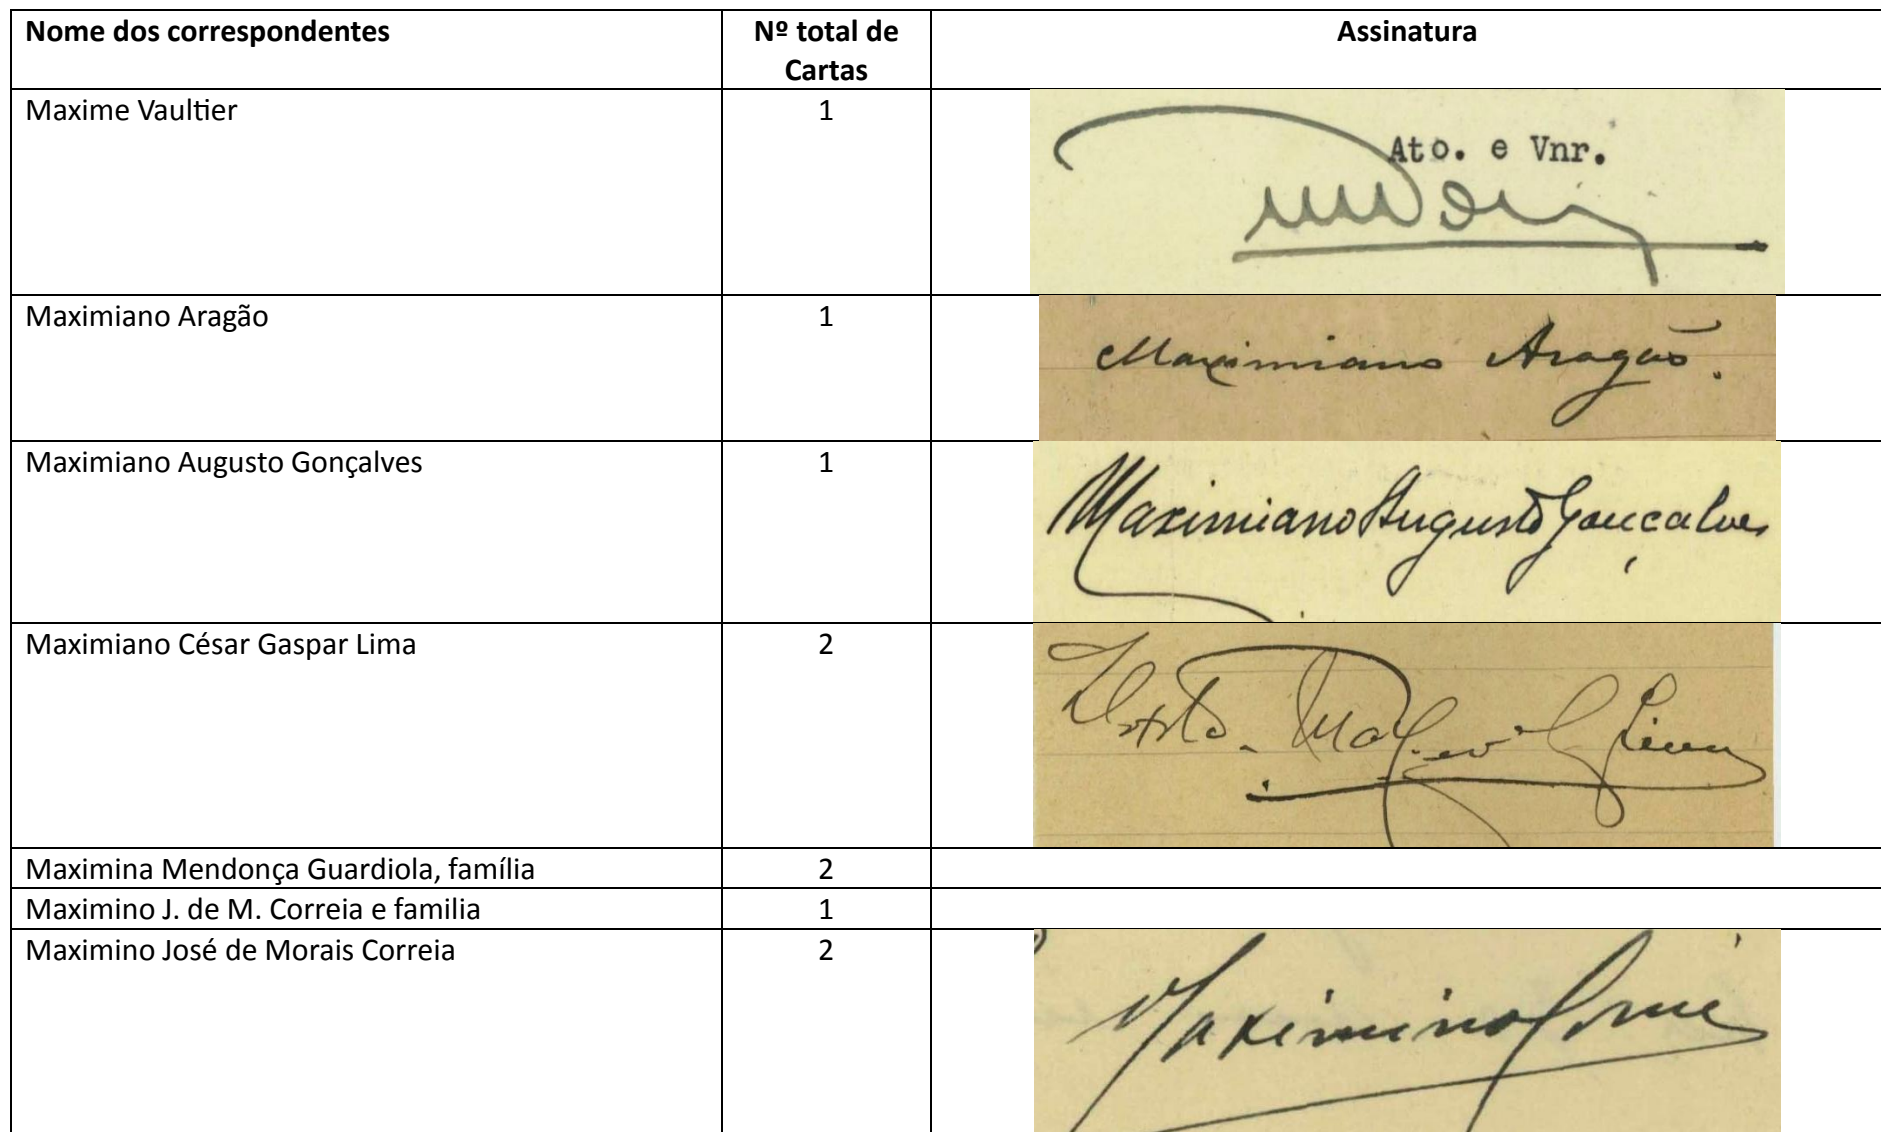 Nome dos correspondentes
Nº total de
Cartas
Assinatura
Maxime Vaultier
1
Ato. e Vnr.
Maximiano Aragão
1
Maximiano Aragão.
Maximiano Augusto Gonçalves
1
Maximiano Augusto Gonçalves
Maximiano César Gaspar Lima
2
Lima
Maximina Mendonça Guardiola, família
2
Maximino J. de M. Correia e familia
1
Maximino José de Morais Correia
2
Maximino Correia